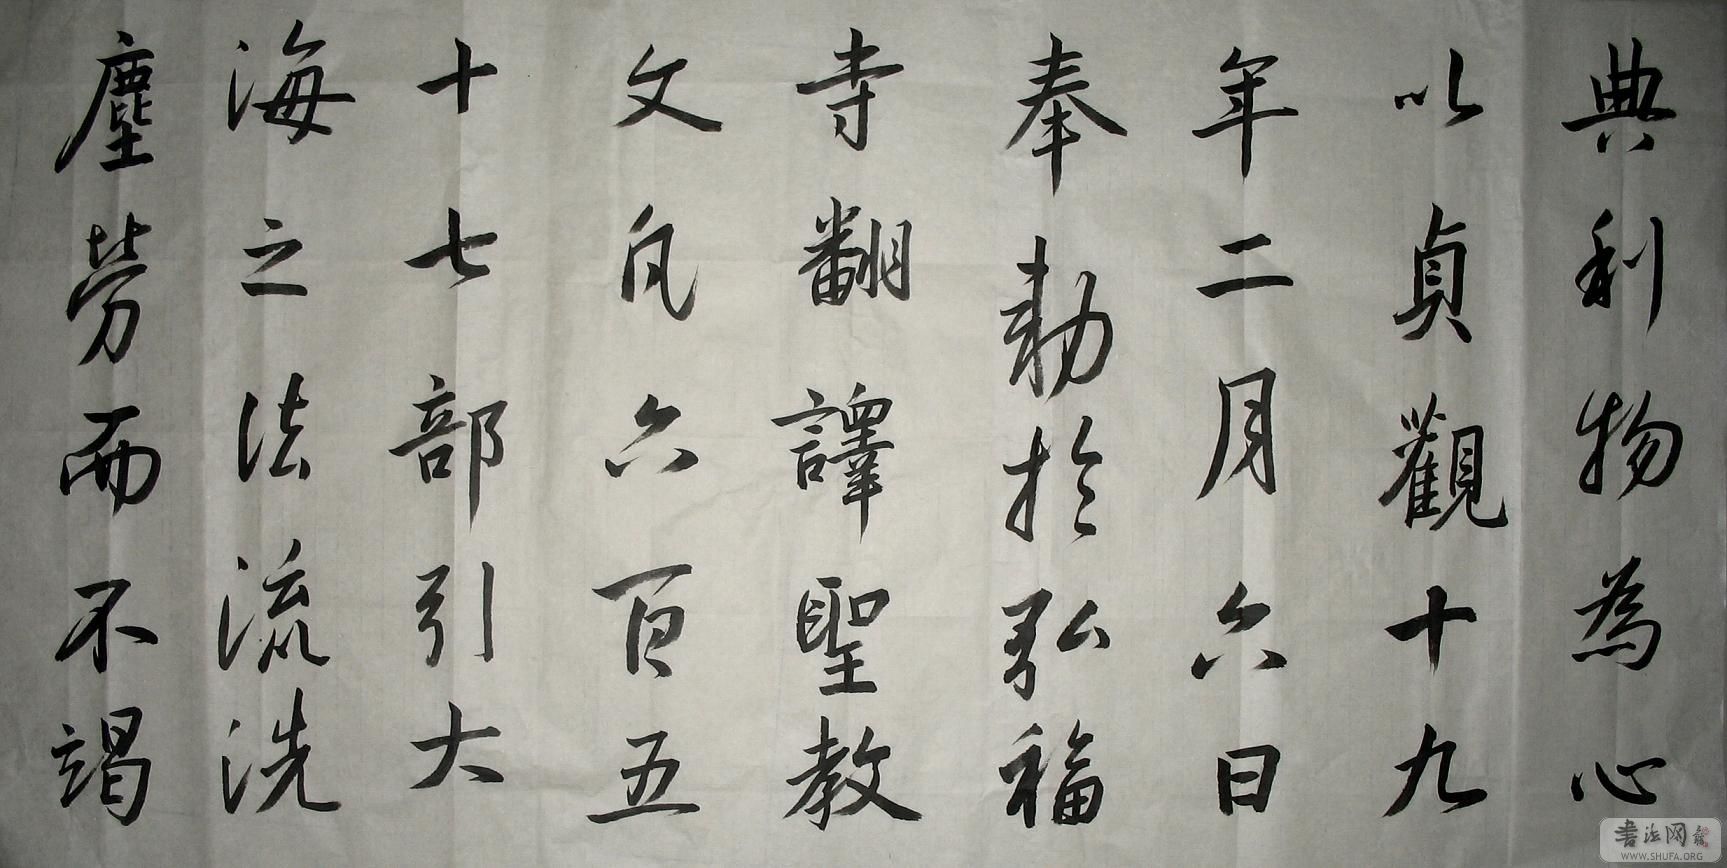 典利物為心
以貞觀十九
年二月六日
奉勅於弘福
寺翻譯聖教
文凡六百五
十七部引大
海之法流洗
塵勞而不竭
书法网
WWW.SHUFA.ORG